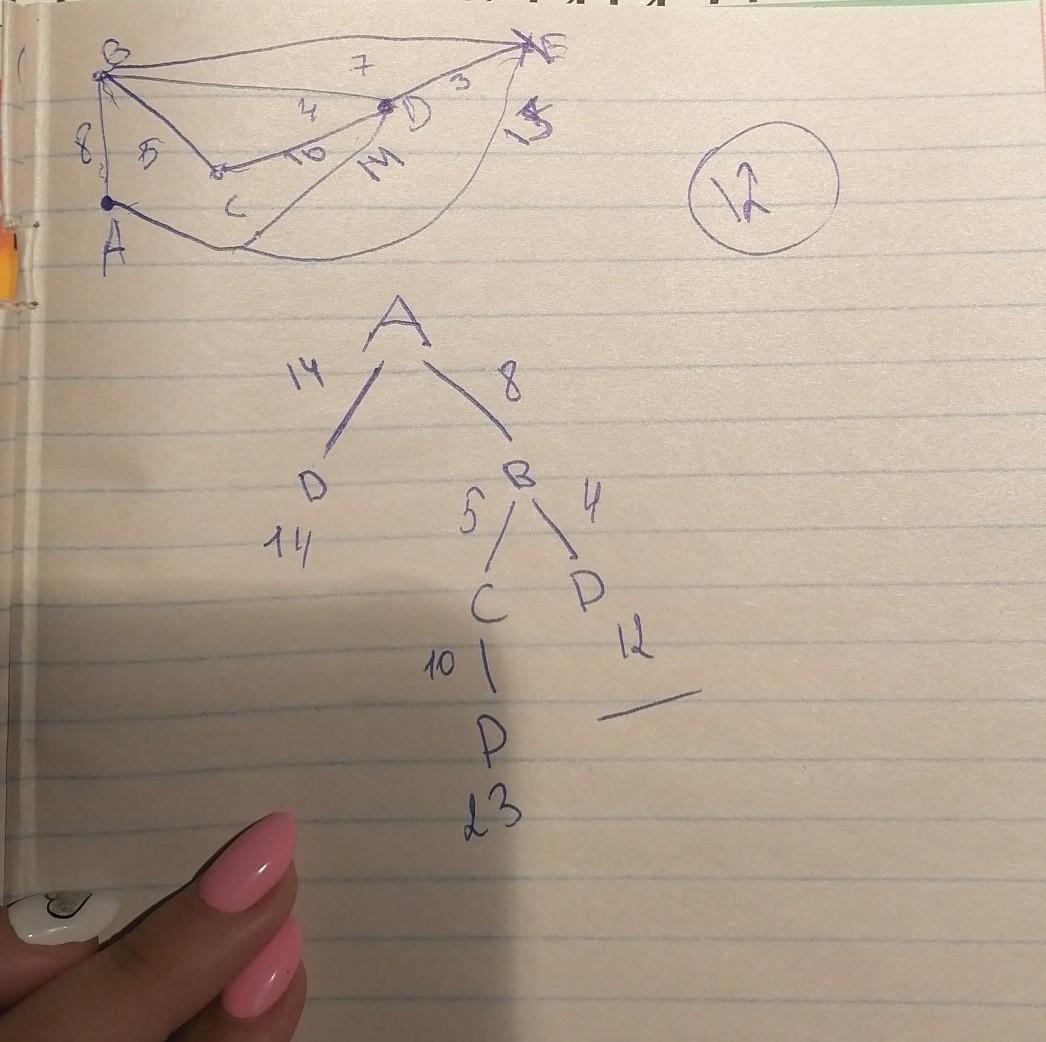 B E
7
3
4 D
8 5 10 14 15
C 12
A
A
14 8
D B
5 4
14
C D
12
10
D
23